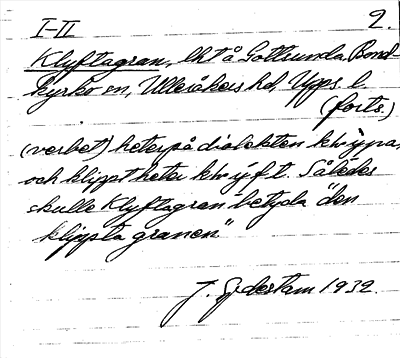 I-II 2.
Klyftagran, lht å Gottsunda, Bond-
kyrko sn, Ulleråkers hd, Upps. l.
(forts.)
(verbet) heter på dialekten klýpa,
och klippt heter klýft. Således
skulle Klyftagran betyda "den
klippta granen"
J. Sjdestam 1932.